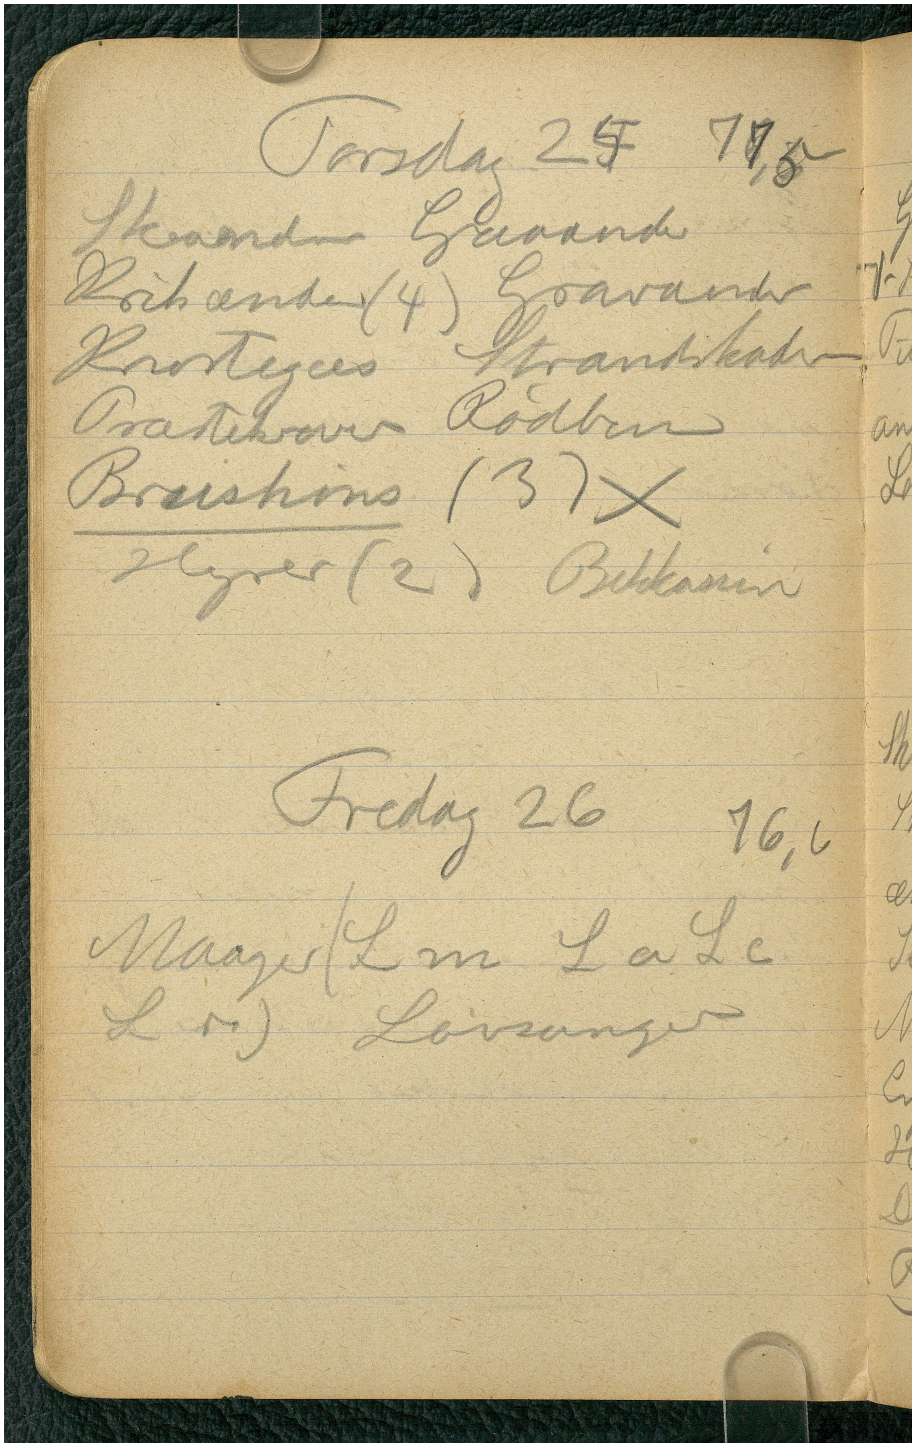 Torsdag 25 77,5
Skeænder Graaænder
Krikænder (4) Gravænder
Knortegæs Strandskader
Præstekraver Rødben
Brushøns (3) X
Hejrer (2) Bekkasin
Fredag 26 76,6
Maager (L m L a L c
L r.) Løvsanger